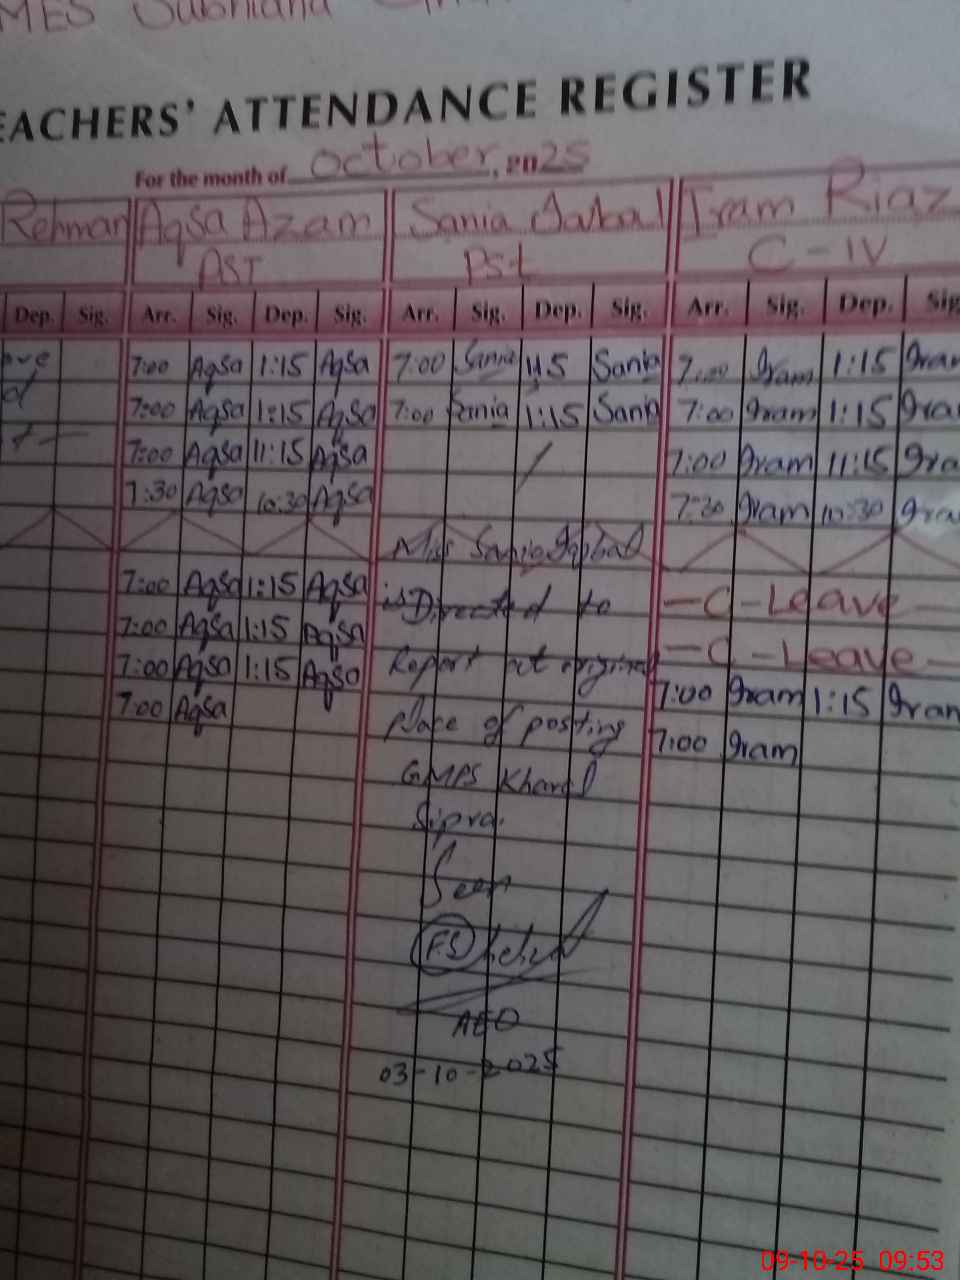 MES Subhana
TEACHERS' ATTENDANCE REGISTER
For the month of October, 2025
Rehman Aqsa Azam Sania Iqbal Iram Riaz
PST Pst C-IV
Dep. Sig. Arr. Sig. Dep. Sig. Arr. Sig. Dep. Sig. Arr. Sig. Dep. Sig
7:00 Aqsa 1:15 Aqsa 7:00 Sania 1:15 Sania 7:00 Iram 1:15 Iram
7:00 Aqsa 1:15 Aqsa 7:00 Sania 1:15 Sania 7:00 Iram 1:15 Ira
7:00 Aqsa 11:15 Aqsa 7:00 Iram 11:15 Ira
7:30 Aqsa 10:30 Aqsa 7:30 Iram 10:30 Ira
Miss Sania Iqbal
7:00 Aqsa 1:15 Aqsa is Directed to -C-Leave-
7:00 Aqsa 1:15 Aqsa Report at original -C-Leave-
7:00 Aqsa 1:15 Aqsa place of posting 7:00 Iram 1:15 Iram
7:00 Aqsa GMPS Kharal 7:00 Iram
Sipra.
Seen
FS
AEO
03-10-2025
09-10-25 09:53